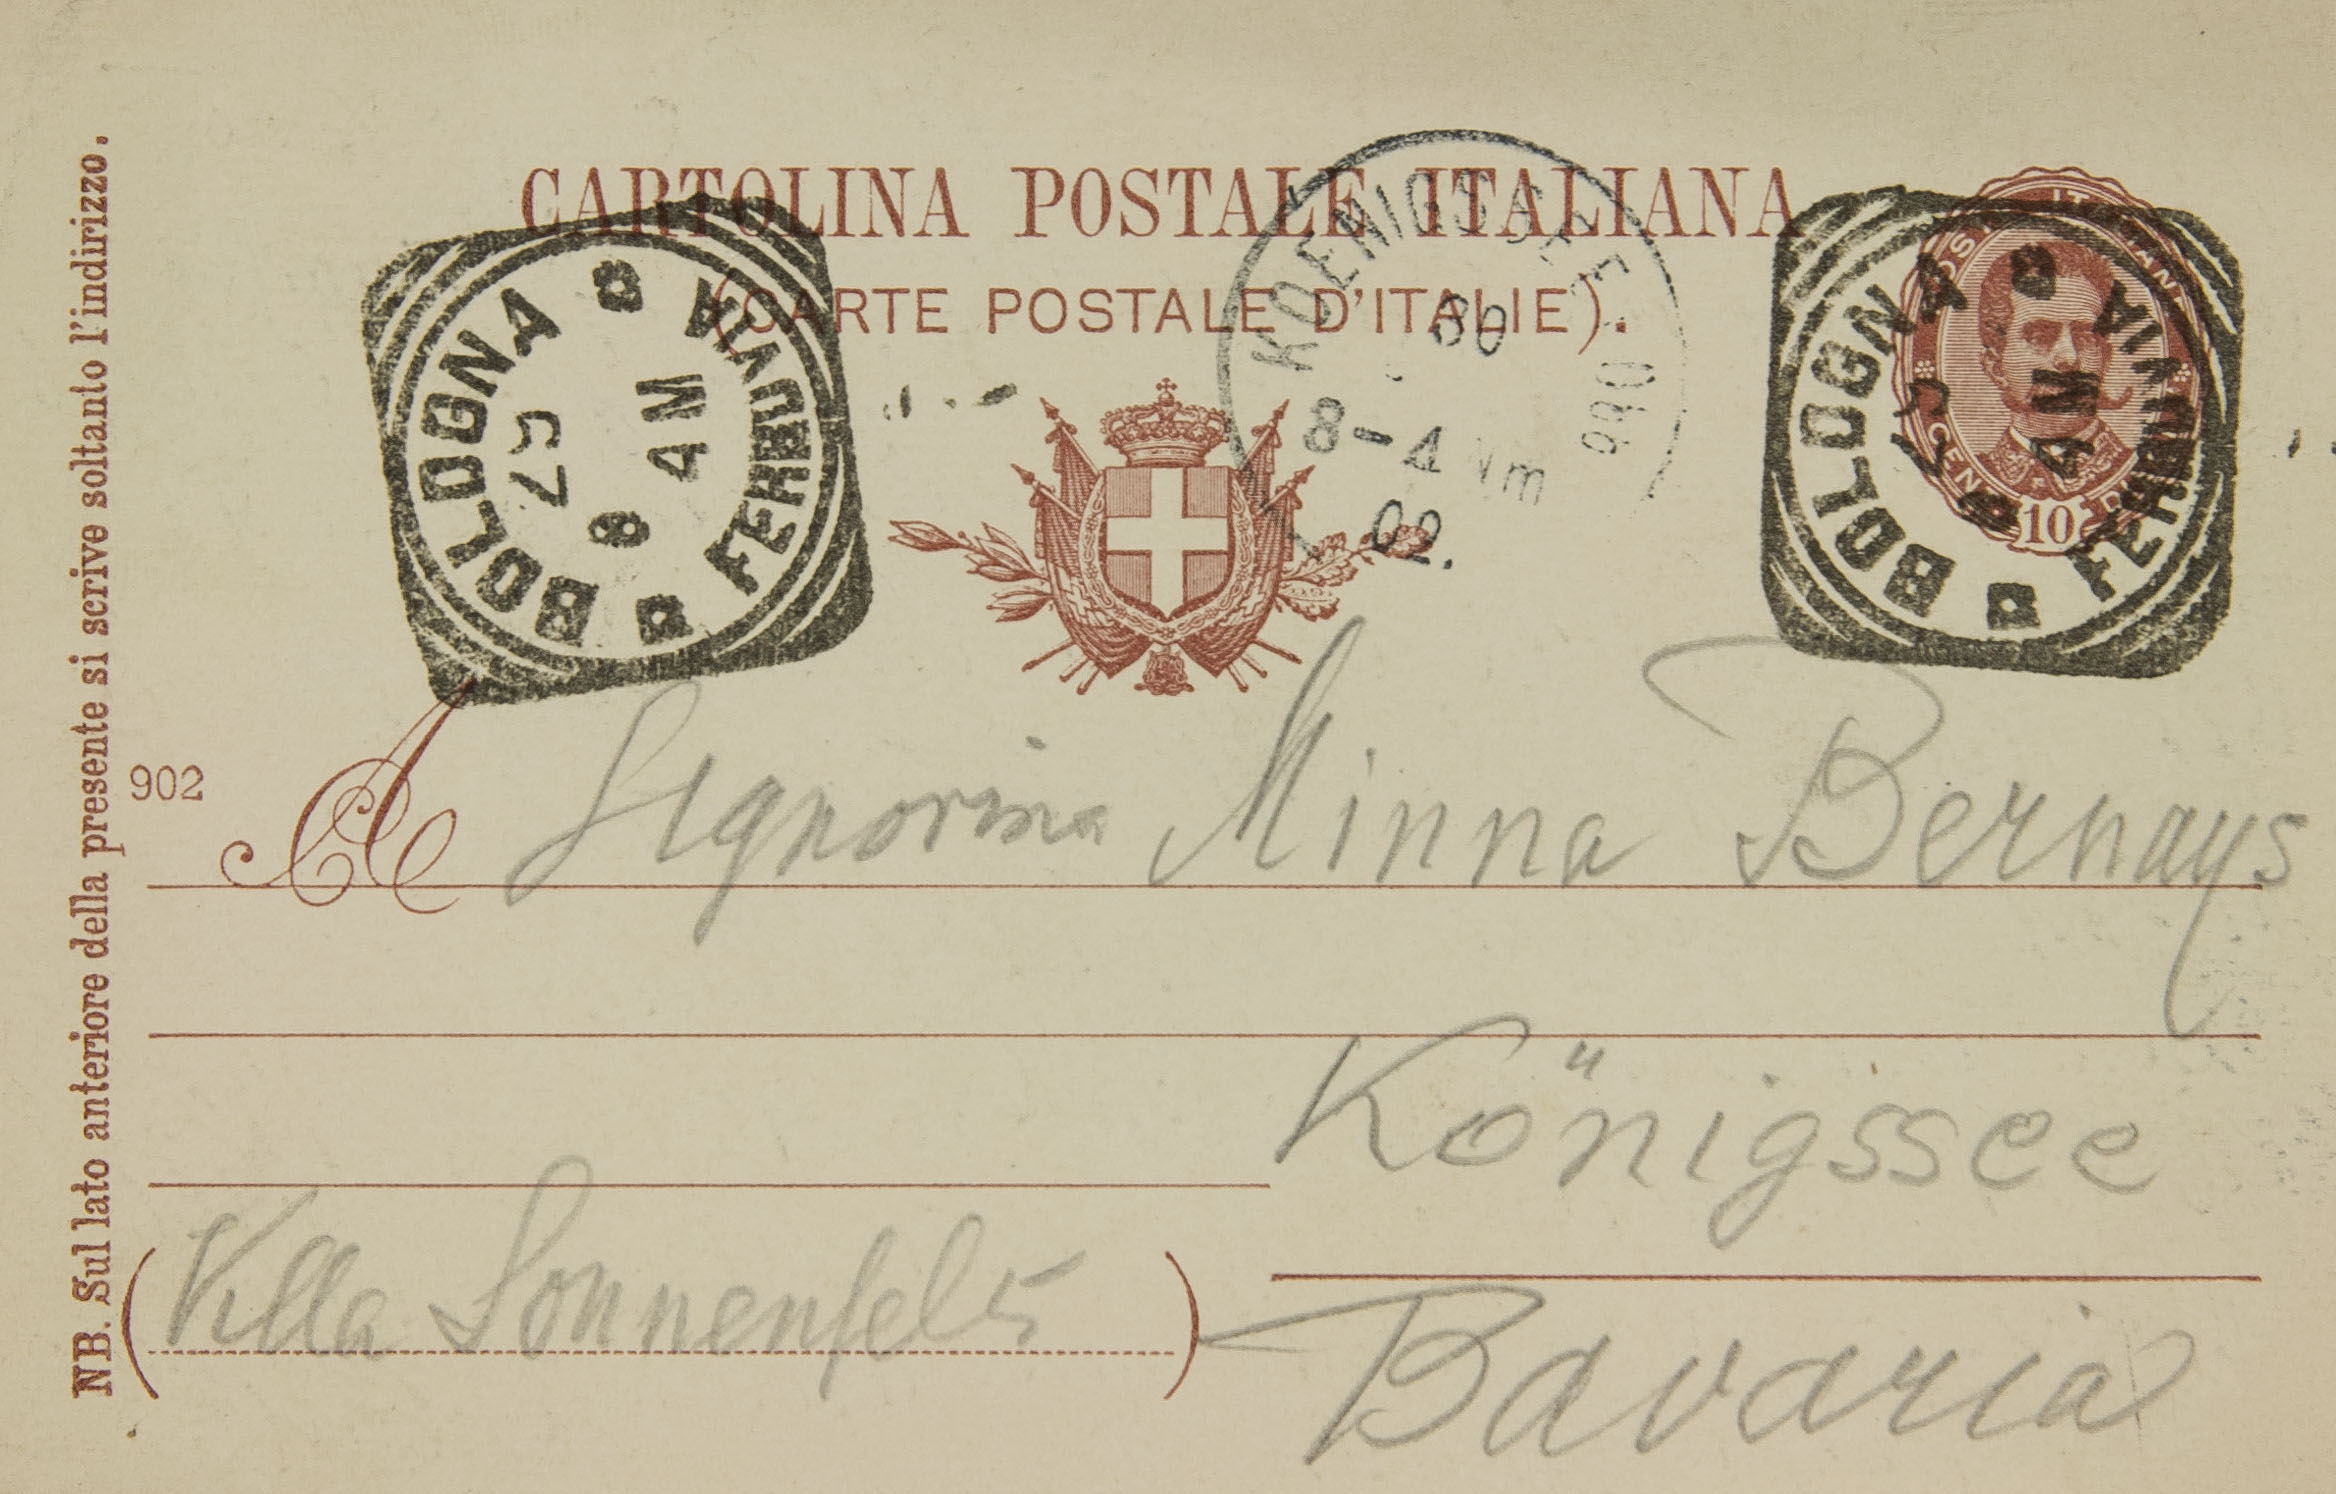 CARTOLINA POSTALE ITALIANA
(CARTE POSTALE D'ITALIE).
NB. Sul lato anteriore della presente si scrive soltanto l'indirizzo.
BOLOGNA
FERROVIA
8 4M
KOENIGSSEE
8-4 Vm
02.
BOLOGNA
FERROVIA
4M
10
902
A Signorina Minna Bernays
Königssee
(Villa Sonnenfels)
Bavaria